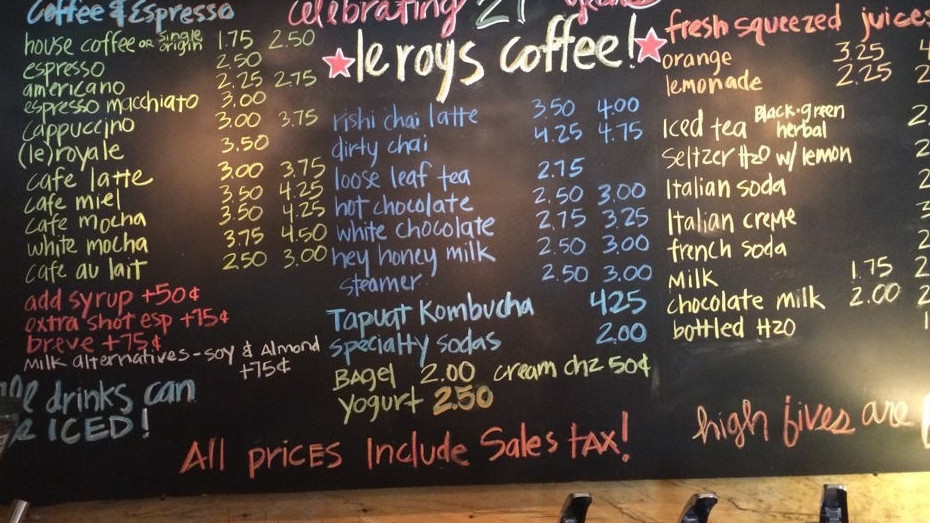 Coffee & Espresso
house coffee or single origin 1.75 2.50
espresso 2.50
americano 2.25 2.75
espresso macchiato 3.00
cappuccino 3.00 3.75
(le)royale 3.50
cafe latte 3.00 3.75
cafe miel 3.50 4.25
cafe mocha 3.50 4.25
white mocha 3.75 4.50
cafe au lait 2.50 3.00
add syrup +50¢
extra shot esp +75¢
breve +75¢
Milk alternatives - soy & Almond
+75¢
drinks can
ICED!
celebrating 21 years
leroys coffee!
rishi chai latte 3.50 4.00
dirty chai 4.25 4.75
loose leaf tea 2.75
hot chocolate 2.50 3.00
white chocolate 2.75 3.25
hey honey milk 2.50 3.00
steamer 2.50 3.00
Tapuat Kombucha 4.25
specialty sodas 2.00
Bagel 2.00 cream chz 50¢
yogurt 2.50
fresh squeezed juices
orange 3.25
lemonade 2.25
Iced tea black·green herbal
Seltzer H2O w/ lemon
Italian soda
Italian creme
french soda
Milk 1.75
chocolate milk 2.00
bottled H2O
high fives are
All prices Include Sales tax!